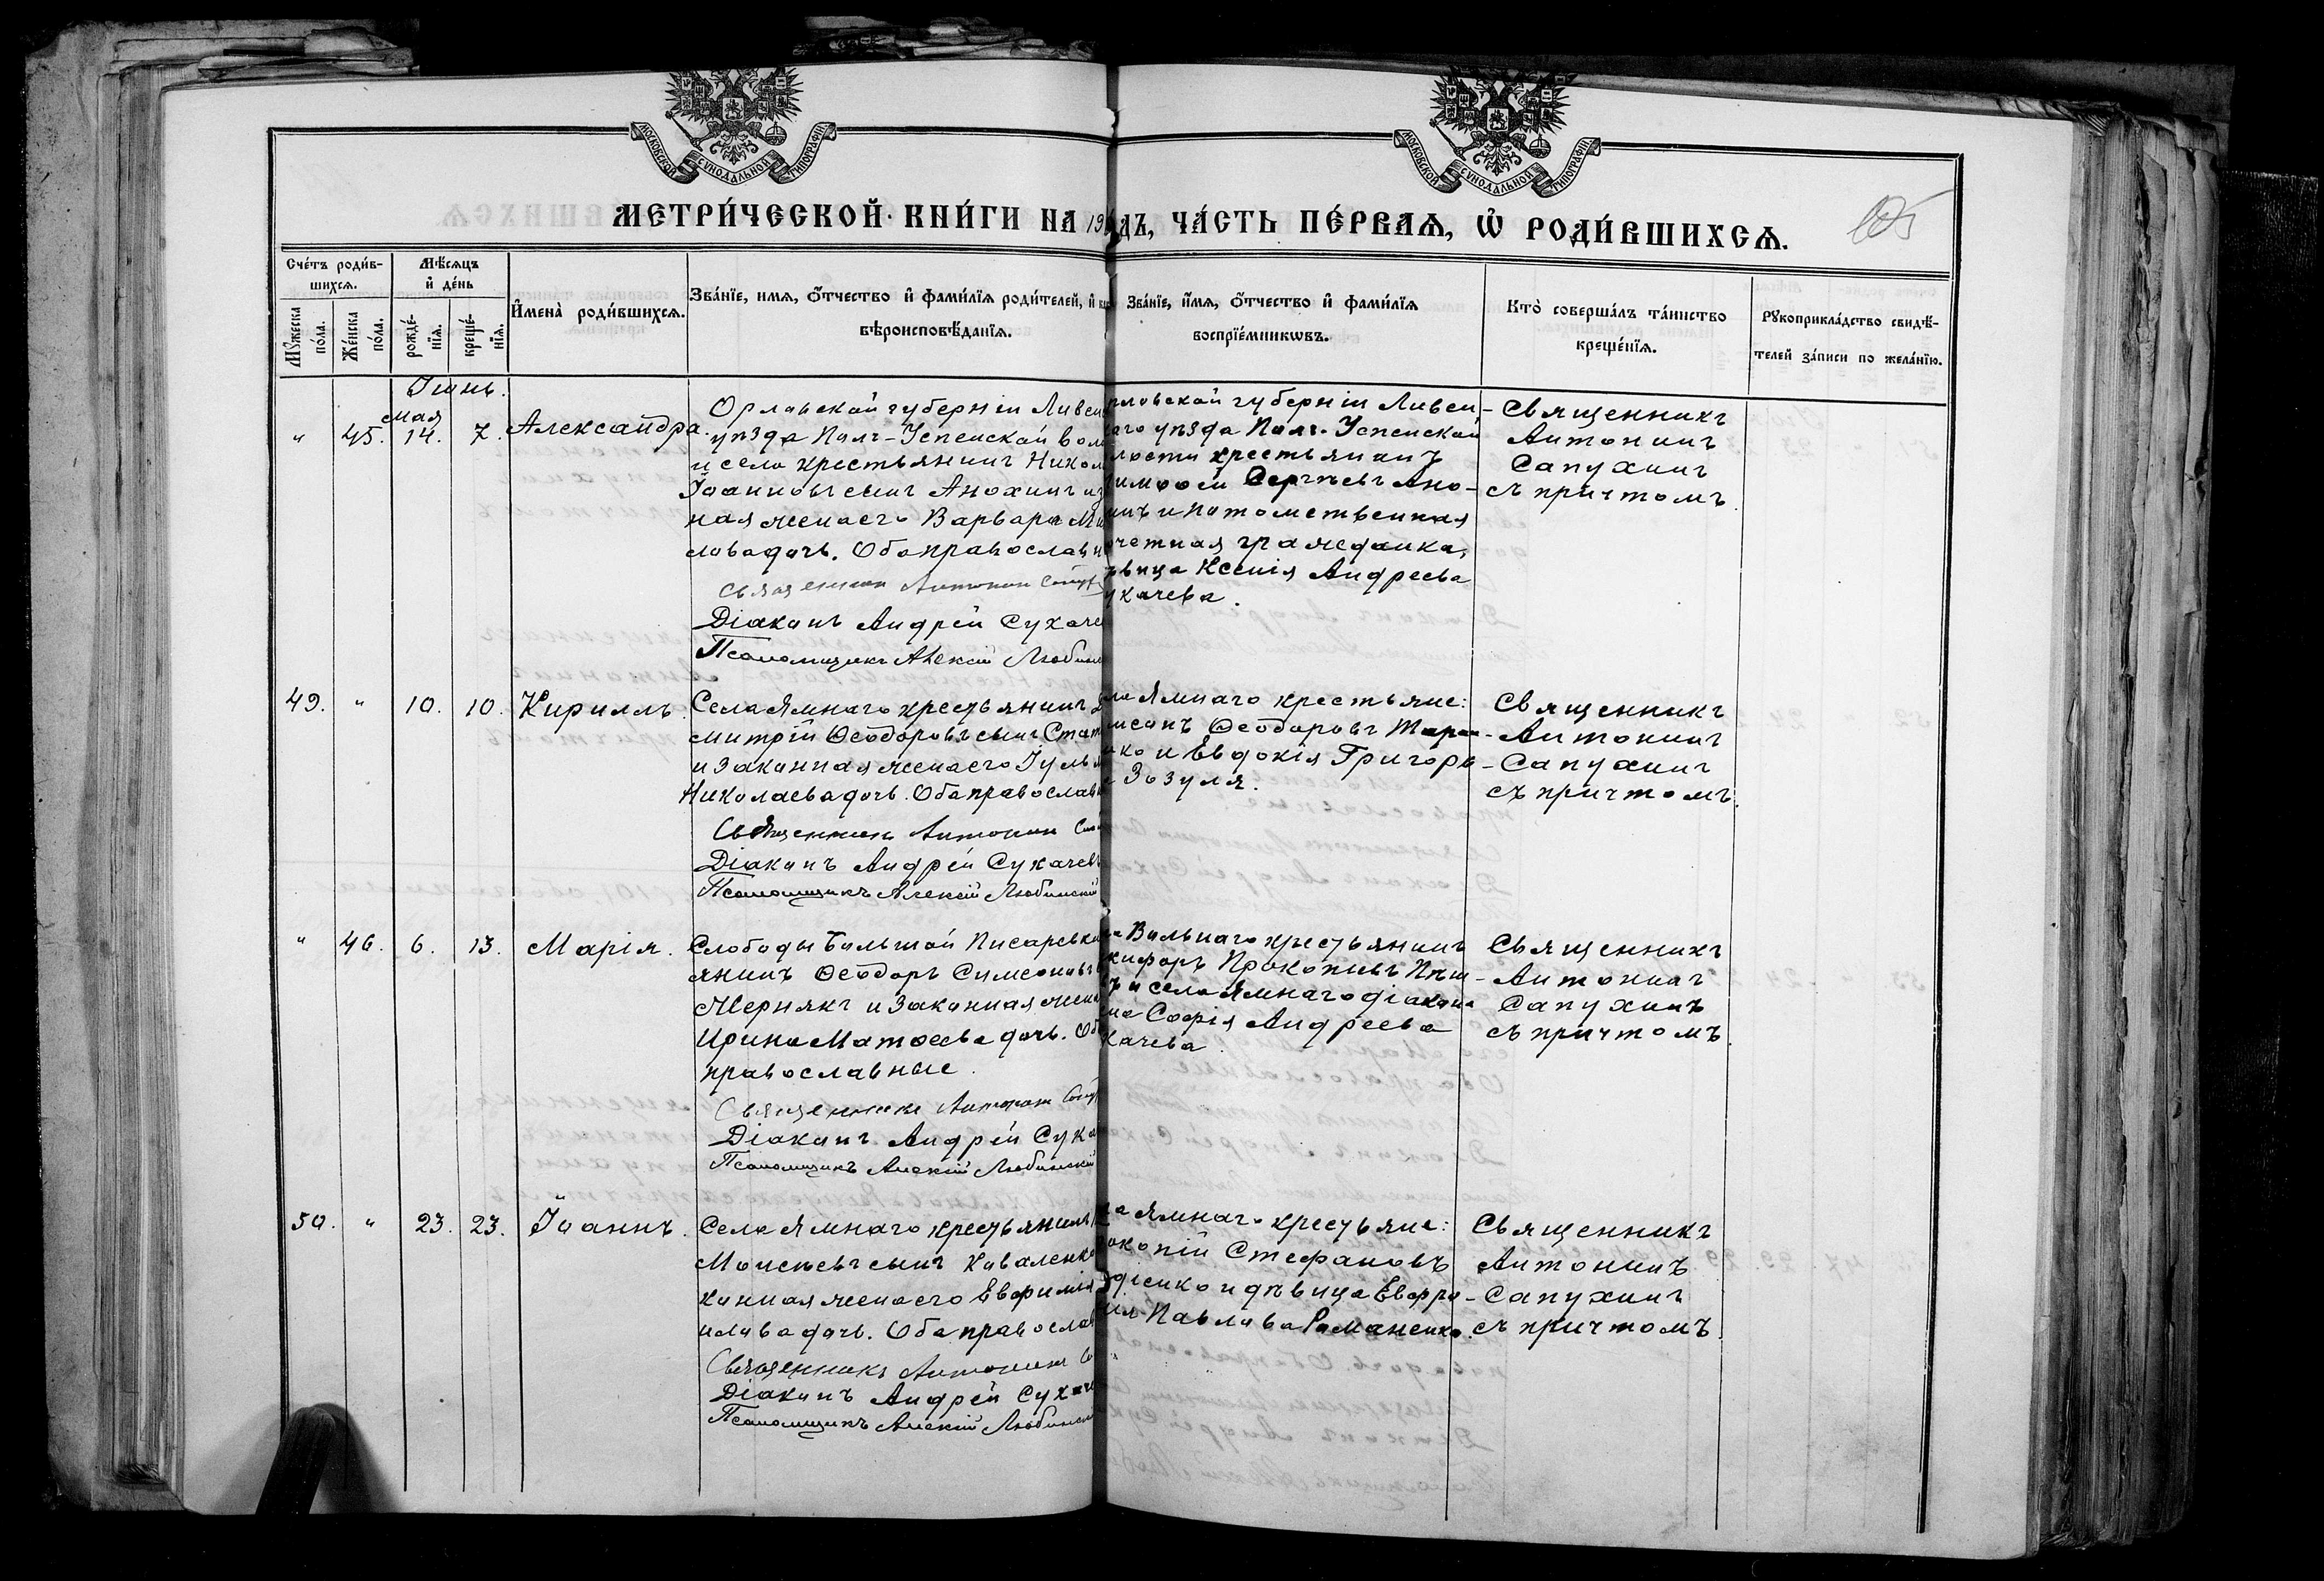 МОСКОВСКОЙ СѴНОДАЛЬНОЙ ТИПОГРАФІИ
МОСКОВСКОЙ СѴНОДАЛЬНОЙ ТИПОГРАФІИ
МЕТРИ́ЧЕСКОЙ КНИ́ГИ НА 19
ДЪ, ЧА́СТЬ ПЕ́РВАѦ, Ѡ҆ РОДИ́ВШИХСѦ.
105
Сче́тъ роди́в-
шихсѧ.
Мꙋ́жеска по́ла.
Же́нска по́ла.
Мѣ́сѧцъ
и҆ де́нь
рожде́-
нїѧ.
креще́-
нїѧ.
И҆мена̀ роди́вшихсѧ.
Зва́нїе, имѧ, ѻ҆́тчество и҆ фами́лїѧ роди́телей, и҆
вѣроисповѣ́данїѧ.
Зва́нїе, и҆́мѧ, ѻ҆́тчество и҆ фами́лїѧ
воспрїе́мникѡвъ.
Кто̀ соверша́лъ та́инство
креще́нїѧ.
Рꙋкоприкла́дство свидѣ́-
телей за́писи по жела́нїю.
Іюнь.
мая
" 45. 14. 7. Александра.
Орловской губерніи Ливен
уѣзда Поль-Успенской воло
и села крестьянинъ Никол
Іоанновъ сынъ Анохинъ и з
ная жена его Варвара Ми
лова дочь. Оба православн
Священникъ Антонинъ Сапух
Діаконъ Андрей Сухаче
Псаломщикъ Алексій Любин
рловской губерніи Ливен-
аго уѣзда Поль-Успенской
лости крестьянинъ
имоѳей Сергѣевъ Ано-
инъ и потомственная
очетная гражданка,
ѣвица Ксенія Андреева
ухачева.
Священникъ
Антонинъ
Сапухинъ
съ причтомъ.
49. " 10. 10. Кириллъ.
Села Ямнаго крестьянинъ Д
митрій Ѳеодоровъ сынъ Стат
и законная жена его Іулья
Николаева дочь. Оба православн
Священникъ Антонинъ Сап
Діаконъ Андрей Сухачевъ
Псаломщикъ Алексій Любинскій
ла Ямнаго крестьяне:
месонъ Ѳеодоровъ Мар
ко и Евдокія Григорь-
а Зозуля.
Священникъ
Антонинъ
Сапухинъ
съ причтомъ.
" 46. 6. 13. Марія.
Слободы Большой Писаревки
янинъ Ѳеодоръ Симеоновъ
Мернякъ и законная жена
Ирина Матѳеева дочь. Об
православные.
Священникъ Антонинъ Сапу
Діаконъ Андрей Суха
Псаломщикъ Алексій Любинскій
а Вольнаго крестьянинъ
кифоръ Прокопіевъ
ъ и села Ямнаго діакона
на Софія Андреева
хачева.
Священникъ
Антонинъ
Сапухинъ
съ причтомъ.
50. " 23. 23. Іоаннъ.
Села Ямнаго крестьянинъ
Моисѣевъ сынъ Коваленко
конная жена его Евфимія
илова дочь. Оба православ
Священникъ Антонинъ Са
Діаконъ Андрей Сухаче
Псаломщикъ Алексій Любинскі
ла Ямнаго крестьяне:
окопій Стефановъ
діенко и дѣвица Евфро-
нія Павлова Романенко.
Священникъ
Антонинъ
Сапухинъ
съ причтомъ.